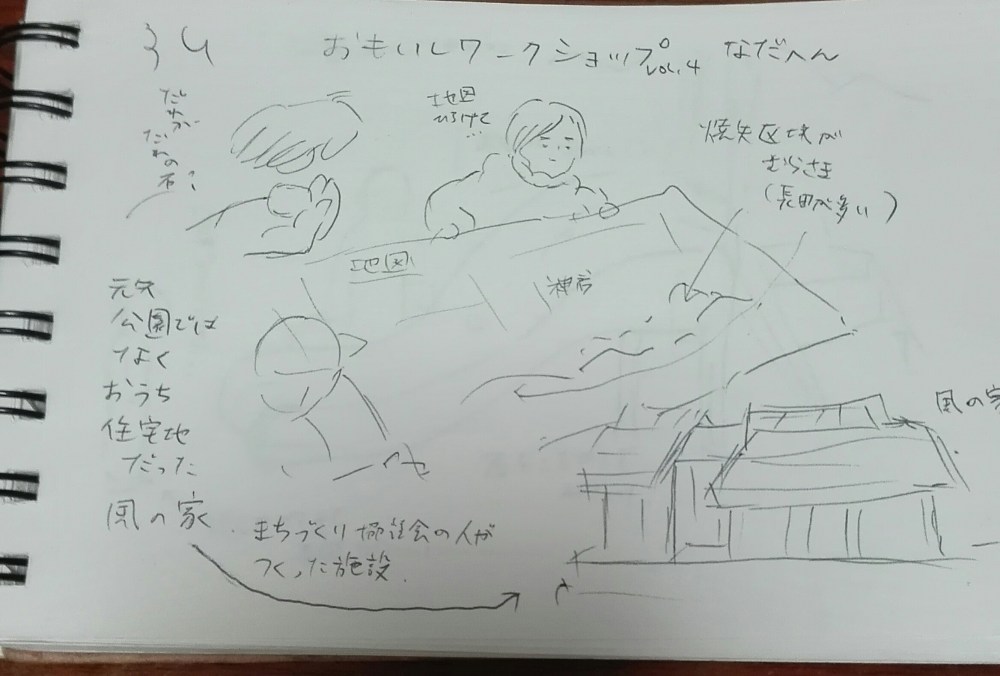 おもいしワークショップ vol.4 なだへん
地図
ひろげて
…
焼失区域が
むらさき
(長田が多い)
地図
神戸
元々
公園では
なく
おうち
住宅地
だった
風の家
風の家
まちづくり協議会の人が
つくった施設.